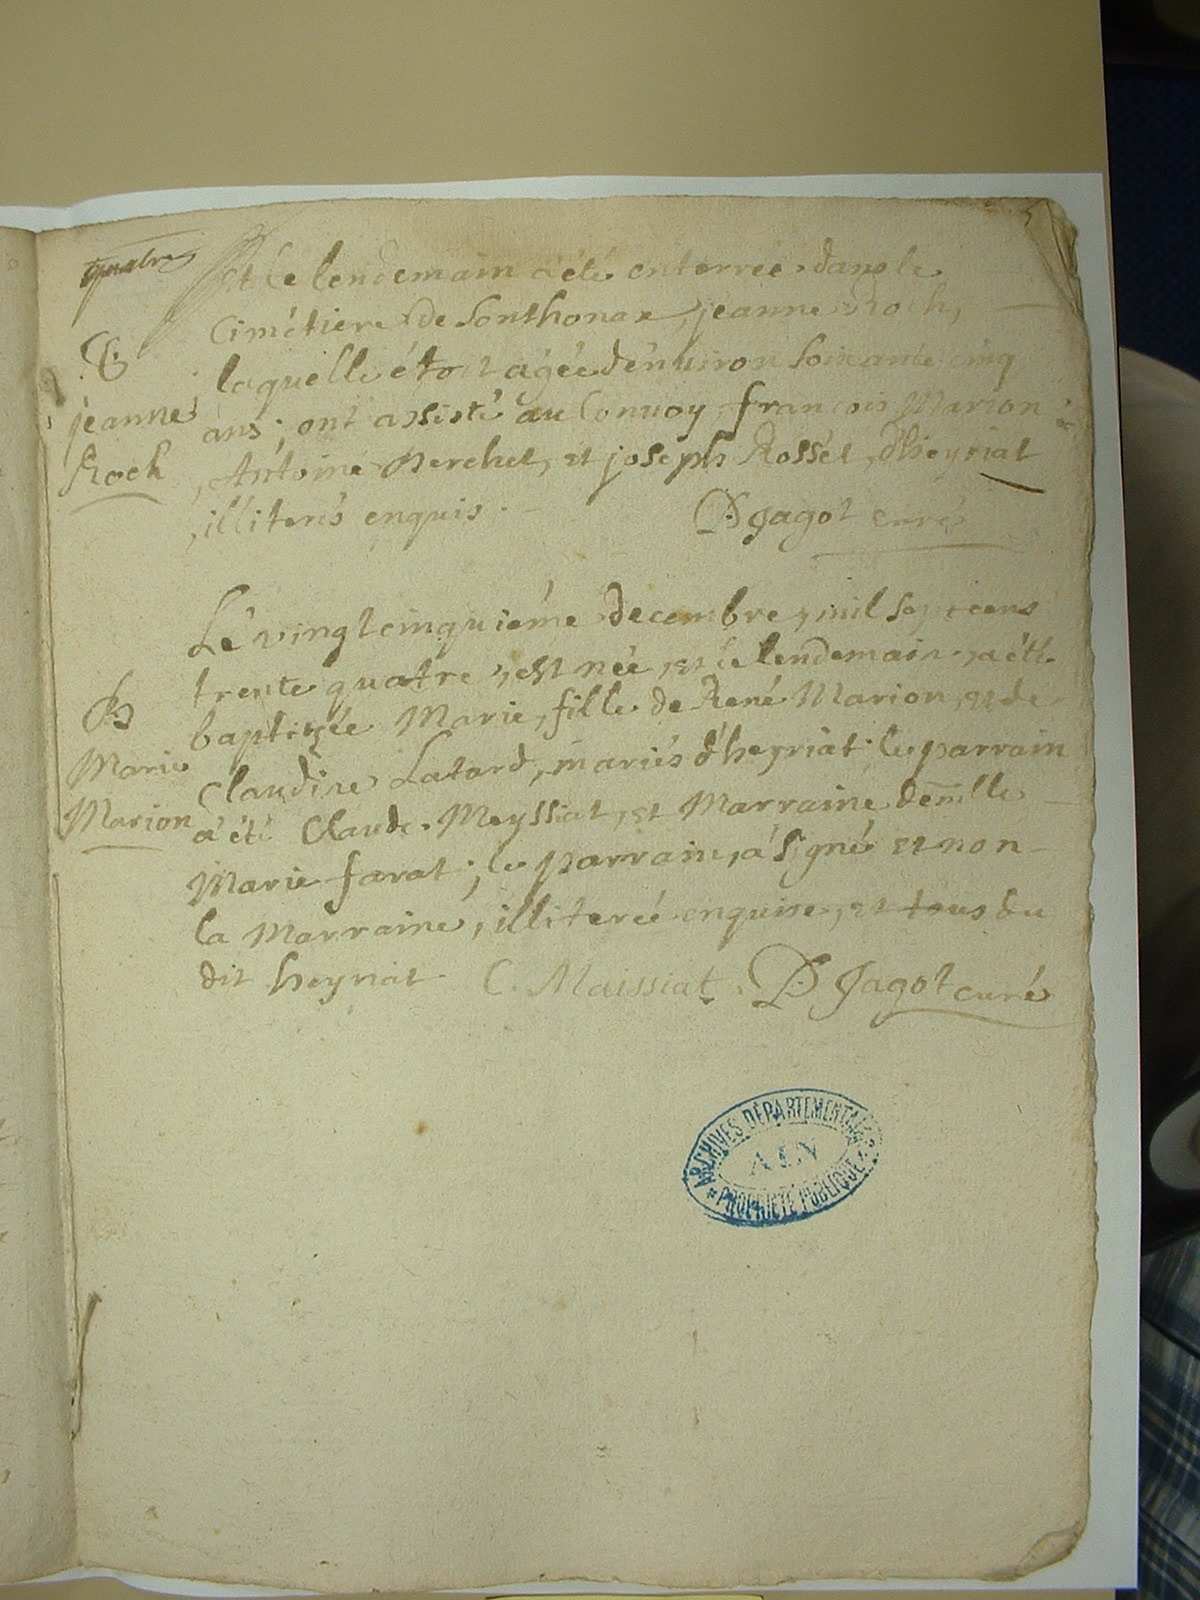 quatre
5
Et le lendemain a été enterrée dans le
Cimétiere de Sonthonax jeanne Roch,
laquelle étoit agée d'environ soixante cinq
ans; ont assisté au Convoy françois Marion
, Antoine Perchet, et joseph Rossét, d'heyriat
, illiterés enquis.
D Jagot curé
jeanne
Roch
Lé vingtcinquiéme decembre, mil sept cens
trente quatre, est née, et le lendemain, a été
baptizée Marie, fille de René Marion, et de
Claudine Latard, mariés d'heyriat; le parrain
a été Claude Meyssiat, et Marraine demlle
Marie farat; le parrain, a signé et non
la Marraine, illiterée enquise, et tous du
dit heyriat
C. Maissiat
D Jagot curé
B
Marie
Marion
ARCHIVES DÉPARTEMENTALES
AIN
PROPRIÉTÉ PUBLIQUE